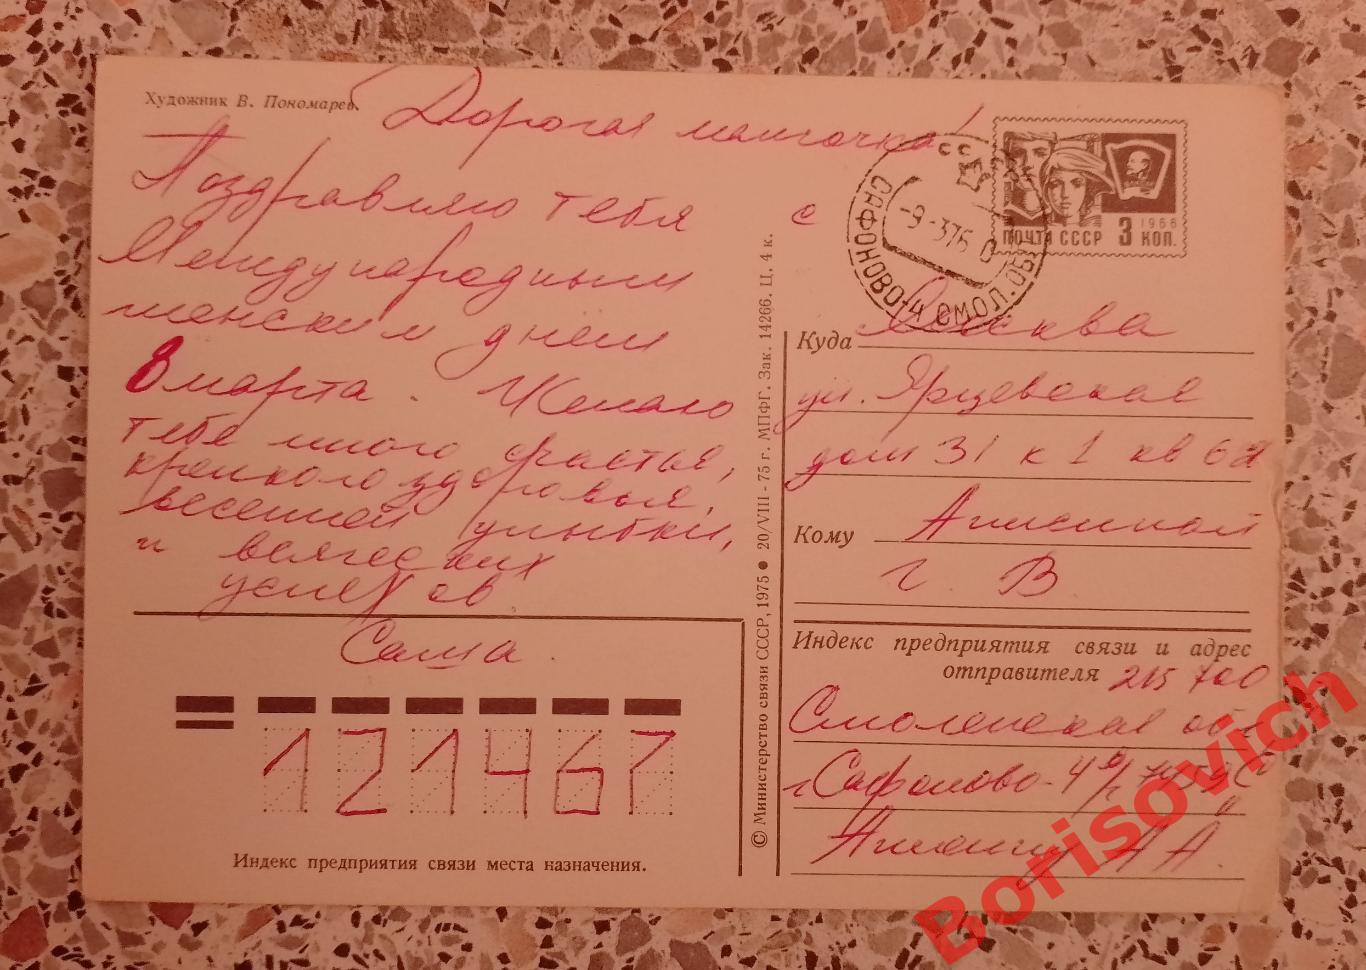 Художник В. Пономарев.
Дорогая мамочка!
Поздравляю тебя с
Международным
женским днем
8 марта. Желаю
тебе много счастья,
крепкого здоровья,
весенней улыбки,
и всяческих
успехов
Саша.
121467
Индекс предприятия связи места назначения.
© Министерство связи СССР, 1975 ● 20/VIII-75 г. МПФГ. Зак. 14266. Ц. 4 к.
ПОЧТА СССР 3 КОП. 1966
САФОНОВО-4 СМОЛ. ОБЛ.
-9-376
СССР
Куда Москва
ул. Ярцевская
дом 31 к 1 кв
Кому
г. В
Индекс предприятия связи и адрес
отправителя 215700
Смоленская обл
г Сафоново-4
А А.
Borisovich